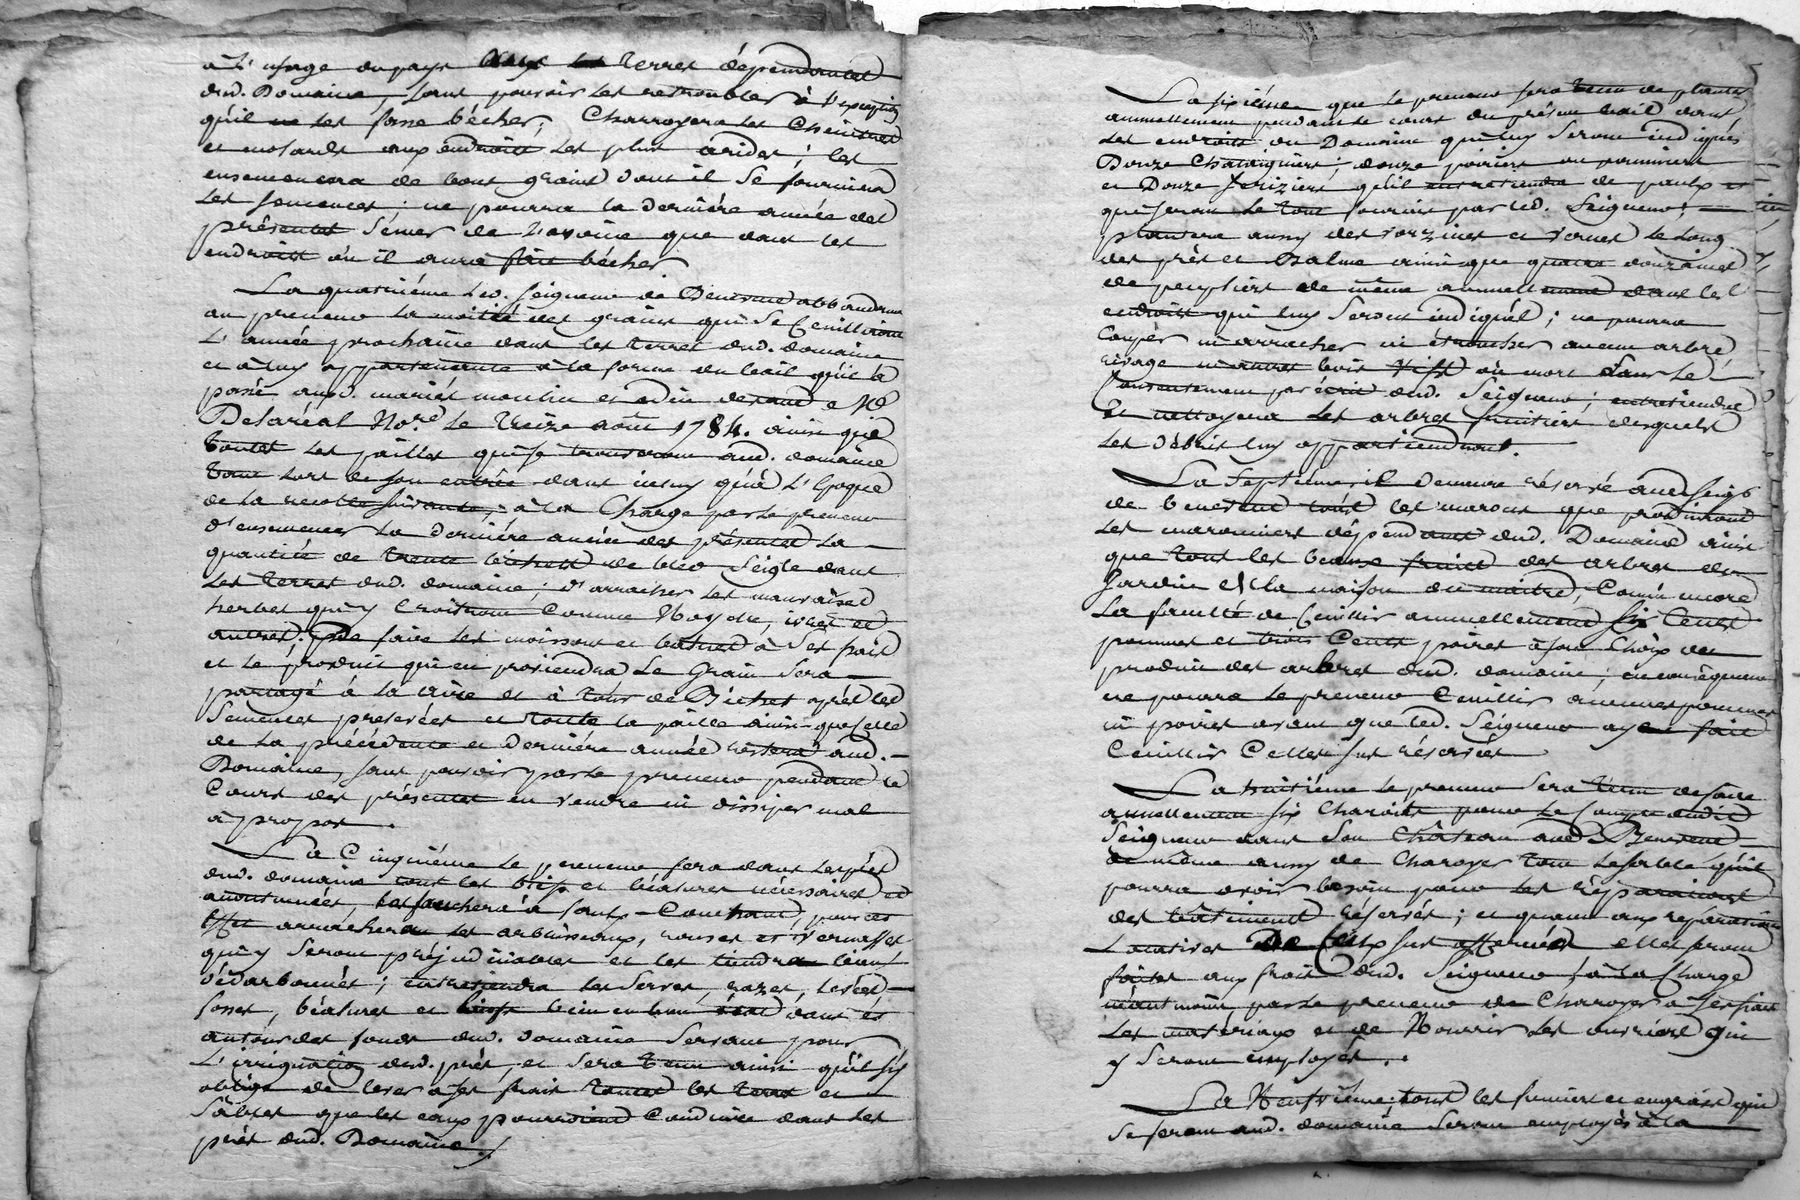 à L'usage du pays les terres dépendantes
dud. Domaine, sans pouvoir les restroubler à l'exception
qu'il ne les fasse bécher; Charroyera les Cheintres
et mosards aux endroits les plus arides; les
ensemencera de bons grains dont il Se fournira
Les semences; ne pourra la dernière année des
présentes Sémer de L'avoine que dans les
endroits où il aura fait bécher
La quatriéme Led. seigneur de Benevent abbandonne
au preneur la moitié des grains qui Se Ceuilliront
L'année prochaine dans les terres dud. domaine
et à luy appartenante à la forme du bail qu'il a
passé aud. mariés moulin et devant Me
Desaréal No.re Le Treize août 1784. ainsi que
toutes les pailles qui se trouveront aud. domaine
lors de son entrée dans icelui qu'à L'Epoque
de la recolte suivante; à la Charge par le preneur
d'ensemencer La dernière année des présentes La
quantité de trente bichets de bled Seigle dans
Les terres dud. domaine; d'arracher les mauvaises
herbes qui y Croitront Comme
autres; de faire les moissons et battre à Ses frais
et le produit qui en proviendra Le Grain Sera
partagé à la aire et à tour de Bichet après les
Semences prelevées et toute la paille ainsi que Celle
de la précédente et dernière année restera aud.
Domaine, sans pouvoir par le preneur pendant le
Cours des présentes en vendre ni dissiper mal
à propos.
La Cinquiéme le preneur fera dans les prés
dud. domaine tous les biefs et béatures nécessaires et
accoutumées, les fauchera à faulx - Couchant, pour cet
Effet arrachera les arbrisseaux, ronces et vernasses
qui y Seront préjudiciables et les tiendra bien
dédarbonnés; entretiendra les Serves, razes, levées
fossés, béatures et biefs bien en bon état dans et
autour des fonds dud. domaine Servant pour
L'irrigation dud. prés, et Sera tenu ainsi qu'il s'y
oblige de lever à Ses frais toutes les terres et
Sables que les eaux pourroient Conduire dans Les
prés dud. Domaine./
La sixiéme que le preneur sera tenu de planter
annuellement pendant le cours du présent bail dans
Les endroits du Domaine qui luy Seront indiqués
Douze Chataigniers; douze poiriers ou pommiers
et Douze serizierS qu'il entretiendra de paulx et
qui seront le tout fournis par led. Seigneur;
plantera aussy des vorzines et vernes Le Long
des prés et Balme ainsi que quatre douzaines
de peupliers de même annuellement dans les
endroits qui luy Seront indiqués; ne pourra
Couper ni arracher ni étroncher aucun arbre
ni autres bois vifs ou mort Sans Le
Consentement par écrit dud. Seigneur; entretiendra
Et nettoyera les arbres fruitiers desquels
Les débris luy appartiendront.
La Septiéme il Demeure réservé aud Seigr
de benevent tous les marons que produiront
Les maronniers dépendants dud. Domaine ainsi
que tous les beaux fruits des arbres du
Jardin de la maison du maitre, Comme encore
La faculté de Ceuillir annuellement Six Cents
pommes et trois Cents poires à son Choix du
produit des arbres dud. domaine; en conséquence
ne pourra Le preneur Ceuillir aucunes pommes
ni poires avant que led. Seigneur aye fait
Ceuillir Celles sus réservées
La huitiéme le preneur Sera tenu de faire
annuellement six Charois pour Le Compte dudit
Seigneur dans Son Château aud. Benevent
de même aussy de Charoyer tout Le Sable qu'il
pourra avoir besoin pour les réparations
des bâtiments réservés; et quant aux reparations
Locatives De Ceux sus affermés elles seront
faites aux frais dud. Seigneur à la Charge
néantmoins par le preneur de Charoyer à Ses frais
Les materiaux et de Nourrir Les ouvriers qui
y Seront employés.
La Neufviéme: tous les fumiers et engrais qui
Se feront aud. domaine Seront employés à la